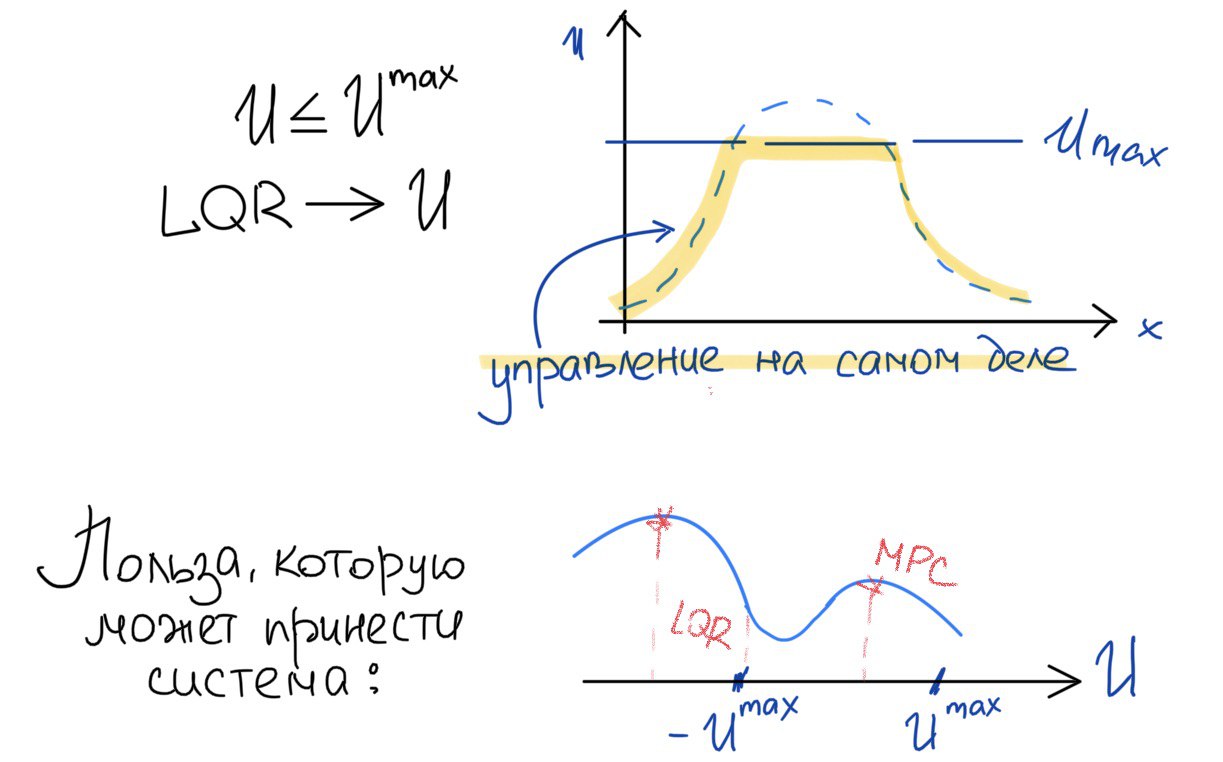 u ≤ u^max
LQR → u
u
u max
x
управление на самом деле
Польза, которую
может принести
система:
LQR
MPC
u
- u^max
u^max